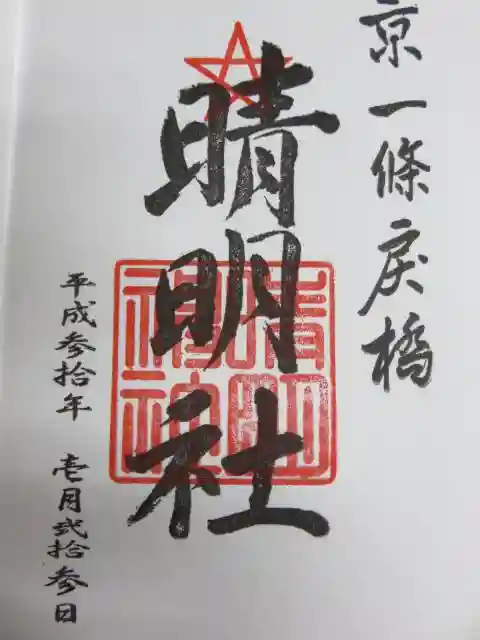 京一條戻橋
晴明社
平成参拾年 壱月弐拾参日